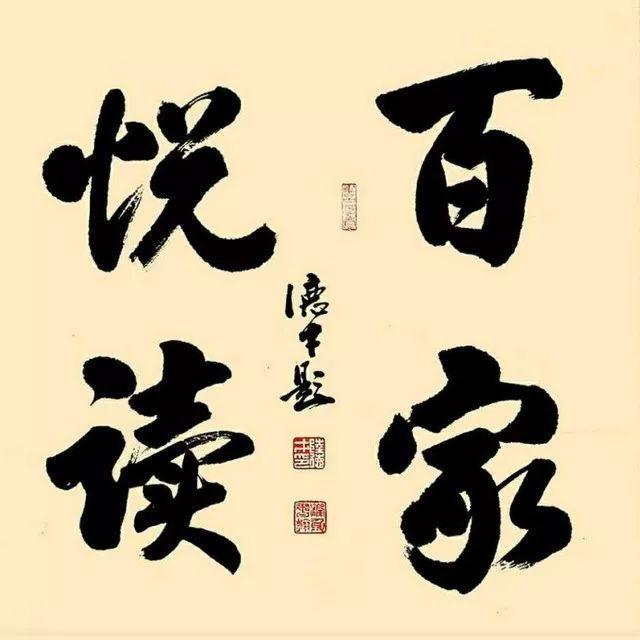 百家
悦读
德才题